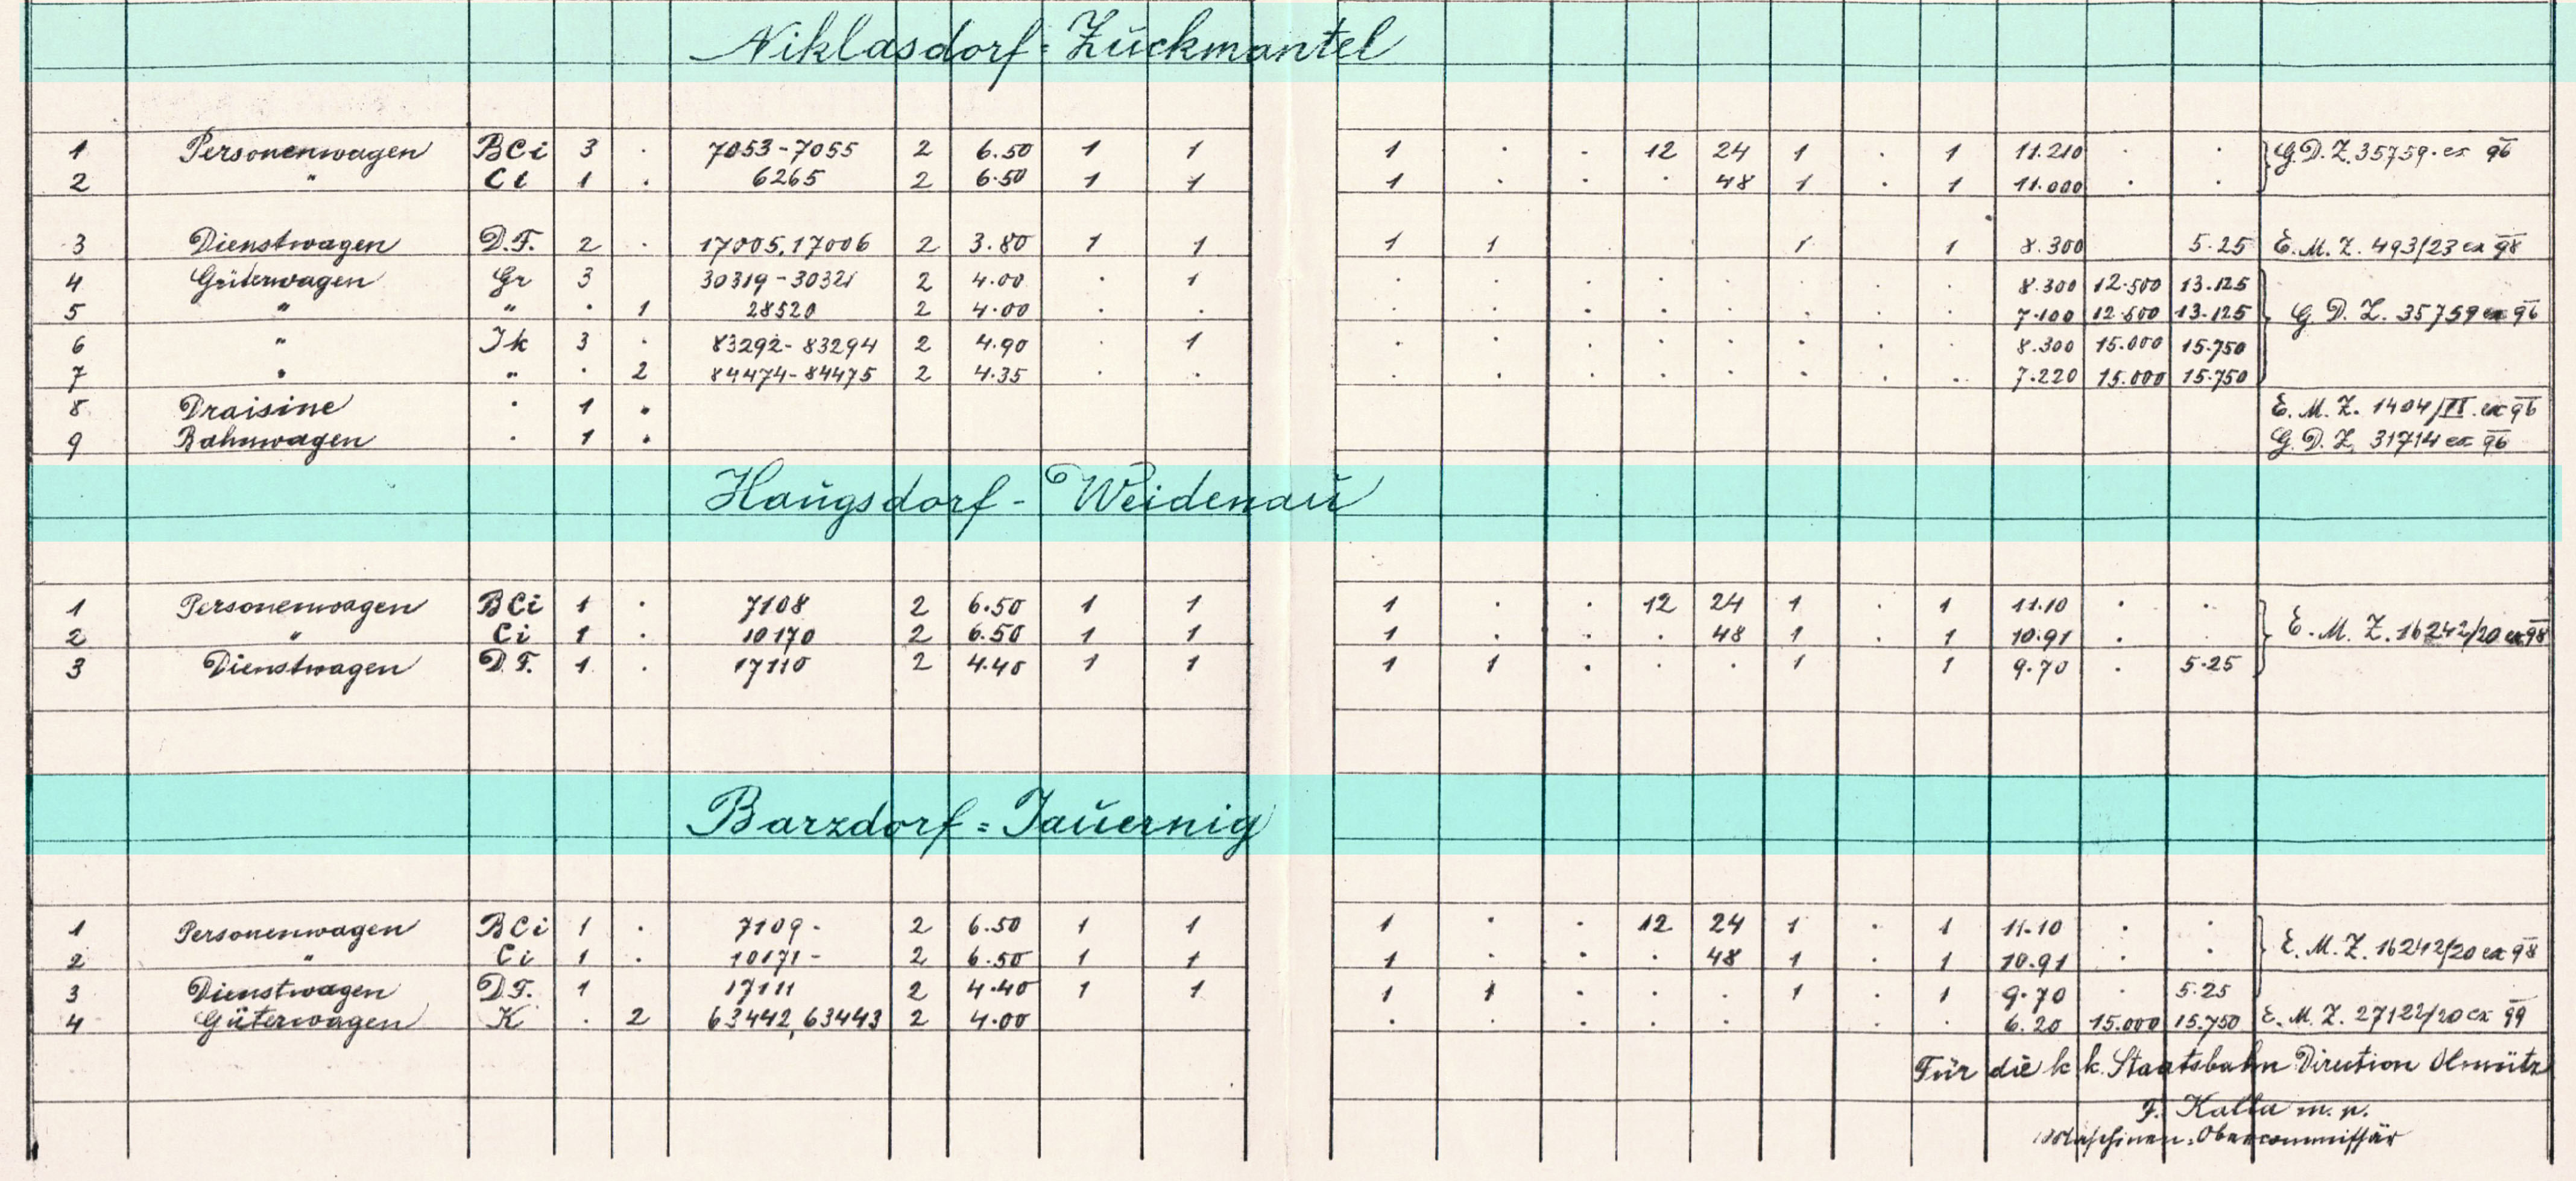 Niklasdorf = Zuckmantel
1 Personenwagen BCi 3 · 7053-7055 2 6.50 1 1 1 · · 12 24 1 · 1 11.210 · · G.D.Z. 35759 · ex 96
2 " Ci 1 · 6265 2 6.50 1 1 1 · · · 48 1 · 1 11.000 · ·
3 Dienstwagen D.F. 2 · 17005, 17006 2 3.80 1 1 1 1 1 1 8.300 5.25 E.M.Z. 493/23 ex 98
4 Güterwagen Gr 3 30319-30321 2 4.00 · 1 · · · · · · · · 8.300 12.500 13.125
5 " " · 1 28520 2 4.00 · · · · · · · · · · 7.100 12.500 13.125 G.D.Z. 35759 ex 96
6 " Jk 3 · 83292-83294 2 4.90 · 1 · · · · · · · · 8.300 15.000 15.750
7 " " · 2 84474-84475 2 4.35 · · · · · · · · · · 7.220 15.000 15.750
8 Draisine · 1 · E.M.Z. 1404/III ex 96
9 Bahnwagen · 1 · G.D.Z. 31714 ex 96
Haugsdorf - Weidenau
1 Personenwagen BCi 1 · 7108 2 6.50 1 1 1 · · 12 24 1 · 1 11.10 · ·
2 " Ci 1 · 10170 2 6.50 1 1 1 · · · 48 1 · 1 10.91 · · E.M.Z. 16242/20 ex 98
3 Dienstwagen D F. 1 · 17110 2 4.40 1 1 1 1 · · · 1 1 9.70 · 5.25
Barzdorf = Jauernig
1 Personenwagen BCi 1 · 7109 - 2 6.50 1 1 1 · · 12 24 1 · 1 11.10 · ·
2 " Ci 1 · 10171 - 2 6.50 1 1 1 · · · 48 1 · 1 10.91 · · E.M.Z. 16242/20 ex 98
3 Dienstwagen D F. 1 17111 2 4.40 1 1 1 1 · · · 1 · 1 9.70 · 5.25
4 Güterwagen K · 2 63442, 63443 2 4.00 · · · · · · · 6.20 15.000 15.750 E.M.Z. 27122/20 ex 99
Für die k k. Staatsbahn Direction Olmütz
F. Kalla m. p.
Maschinen-Obercommissär